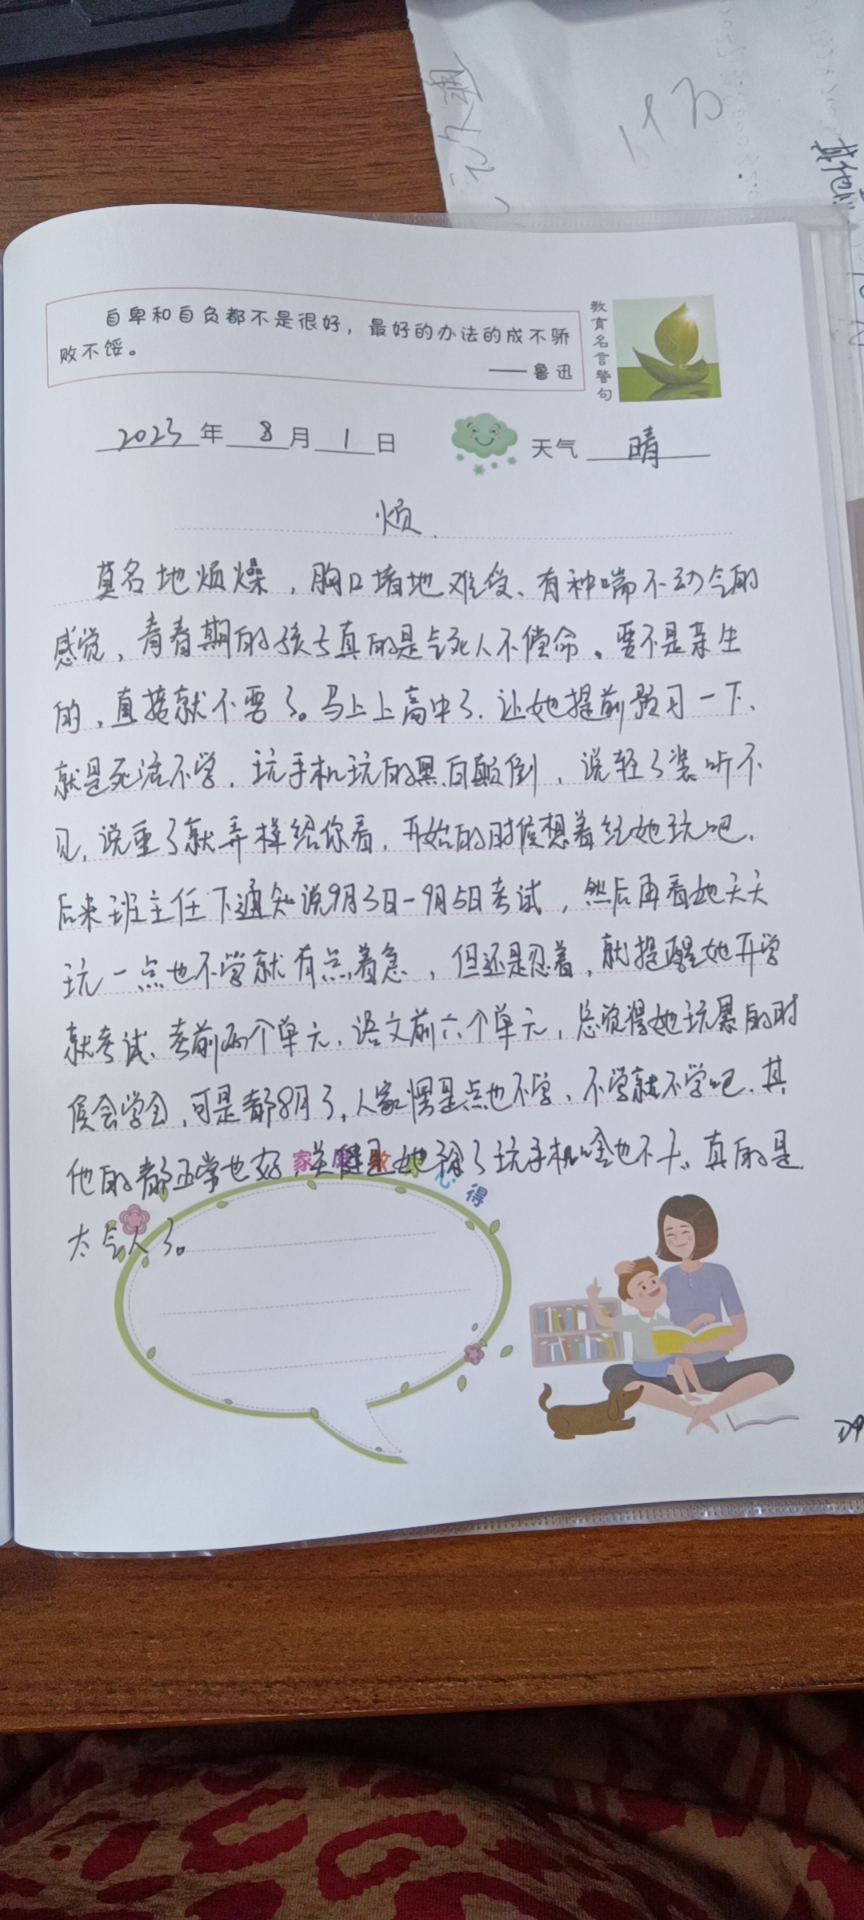 自卑和自负都不是很好，最好的办法的成不骄
败不馁。
——鲁迅
教育名言警句
2023年8月1日 天气 晴
烦.
莫名地烦燥，胸口堵地难受、有种喘不动气的
感觉，青春期的孩子真的是气死人不偿命。要不是亲生
的，直接就不要了。马上上高中了.让她提前预习一下、
就是死活不学，玩手机玩的黑白颠倒，说轻了装听不
见，说重了就弄样给你看，开始的时候想着给她玩吧.
后来班主任下通知说9月3日-9月5日考试，然后再看她天天
玩一点也不学就有点着急，但还是忍着，就提醒她开学
就考试、考前两个单元.语文前六个单元，总觉得她玩累的时
候会学会，可是都8月了，人家愣是点也不学、不学就不学吧.其
他的都正常也好，关键是她除了玩手机啥也不干。真的是
太气人了。
家 教 心得